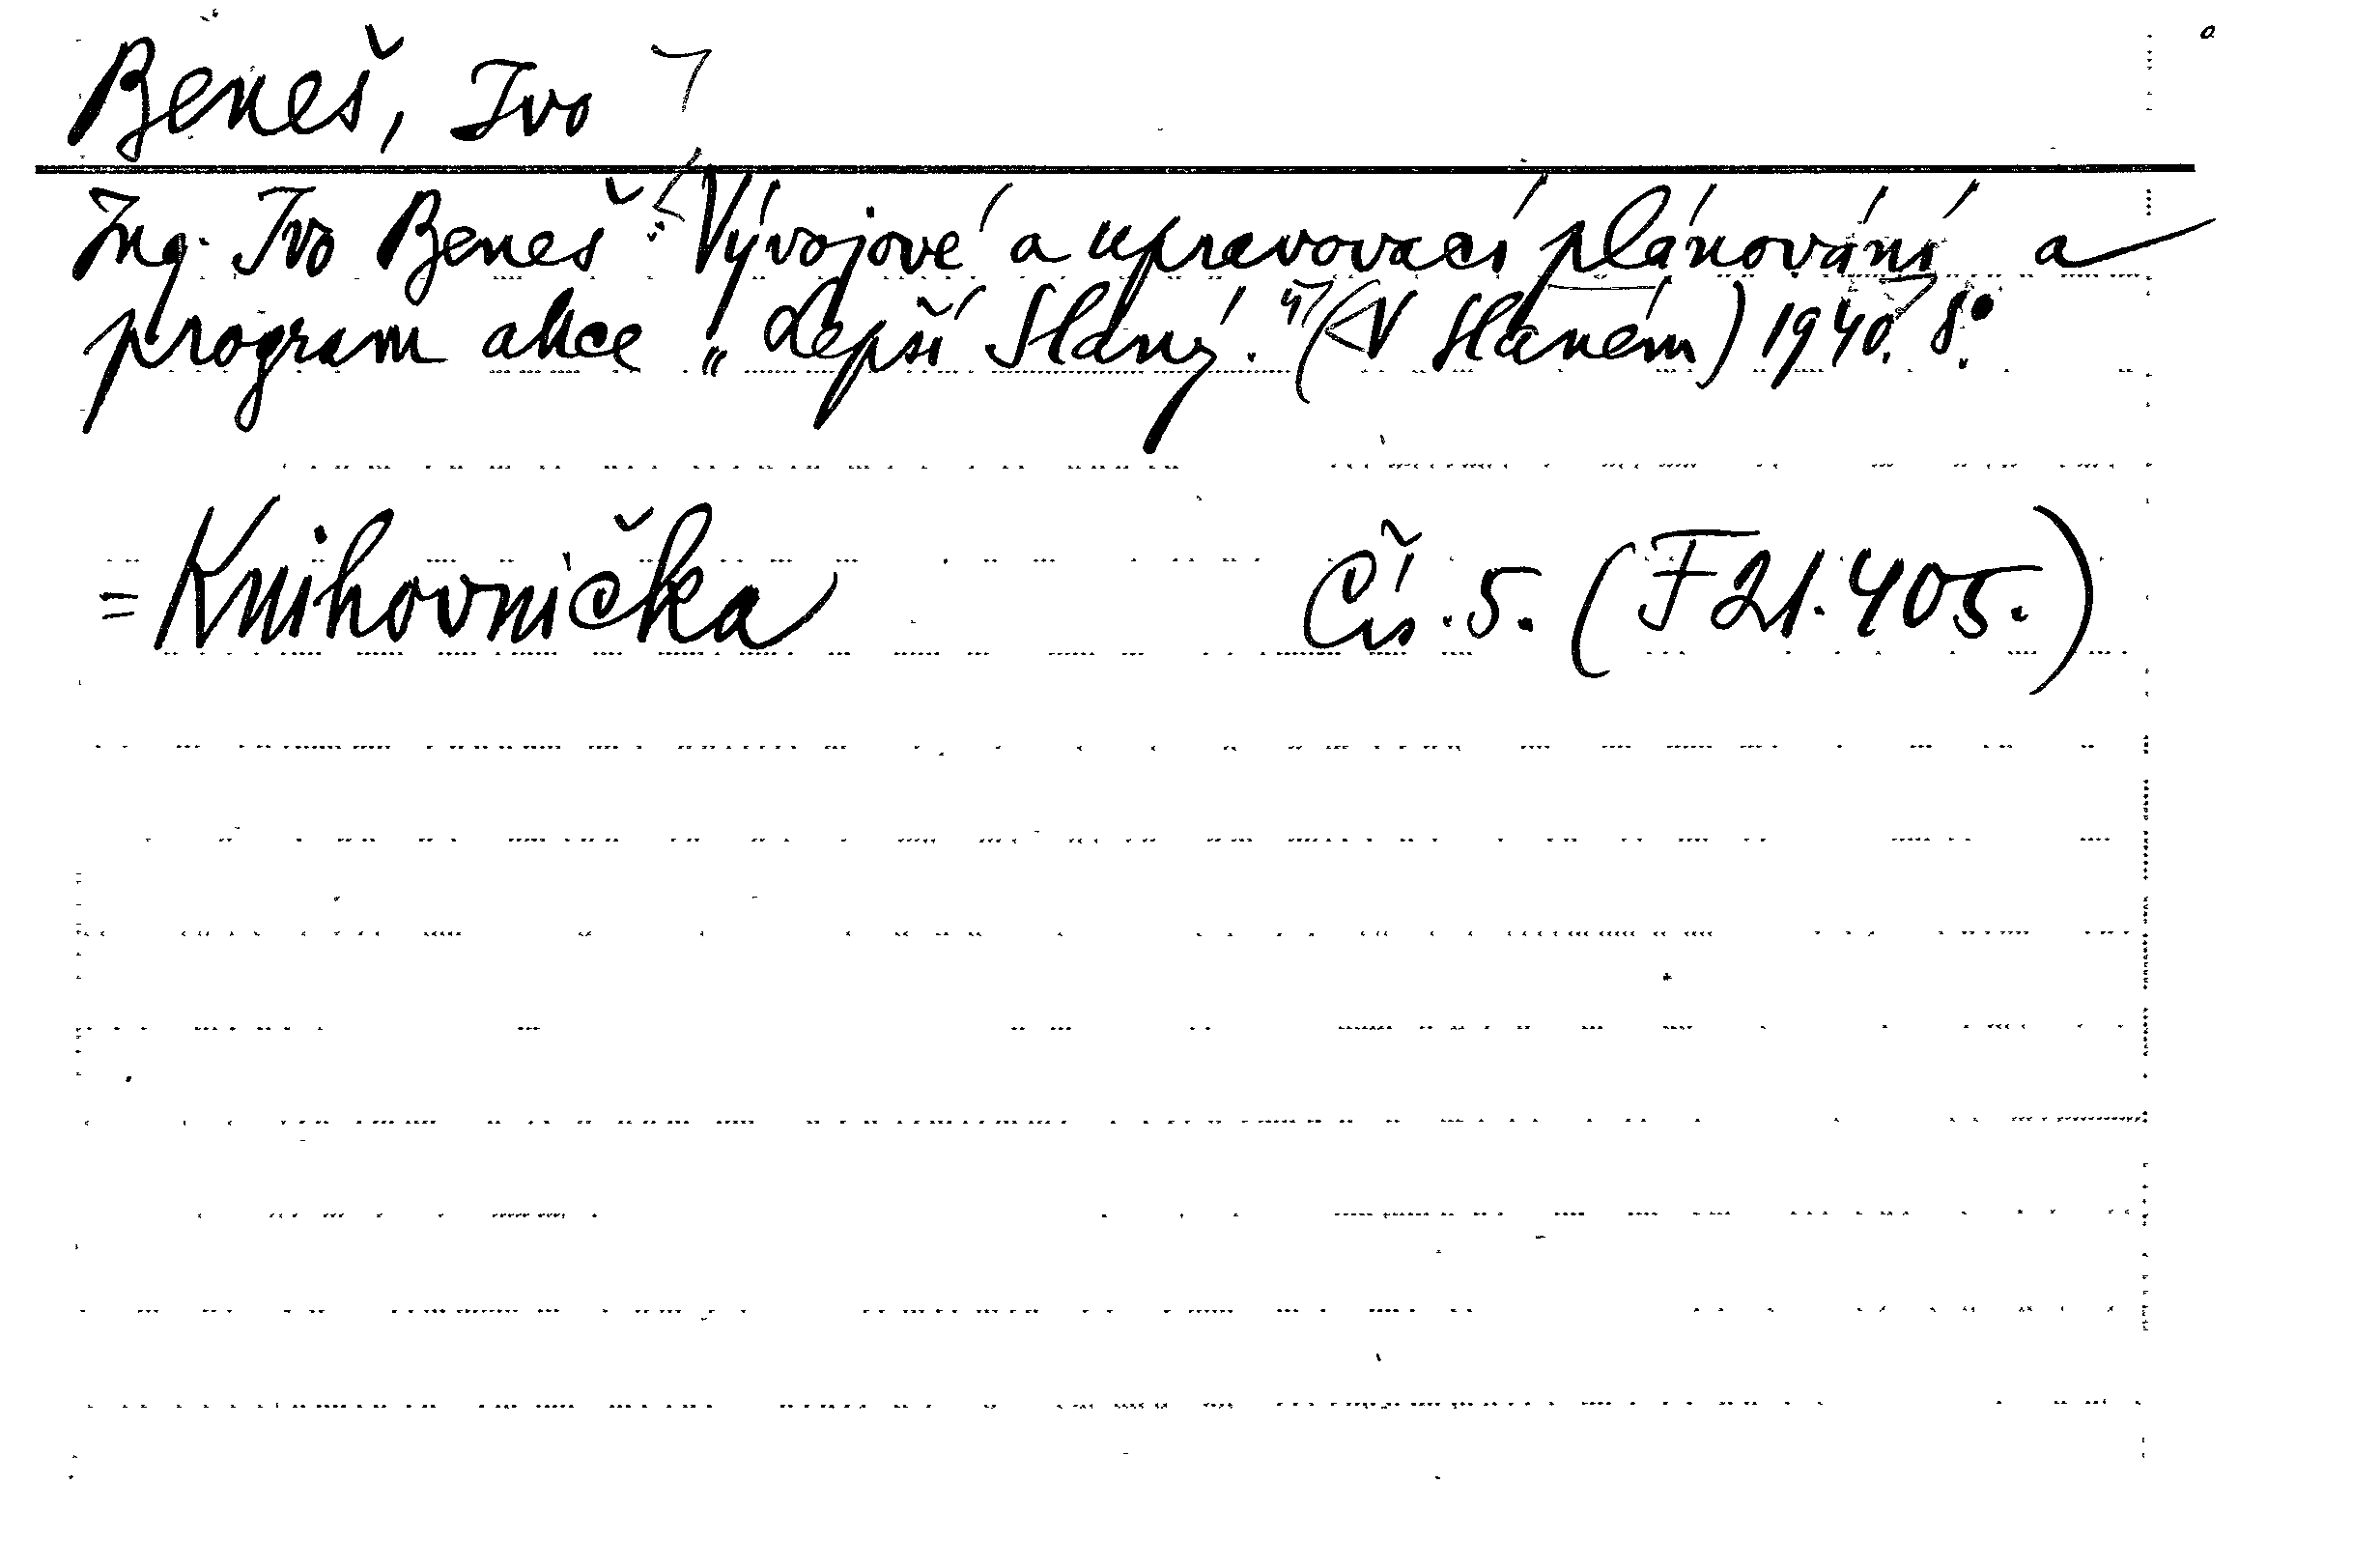 Beneš, Ivo
Ing. Ivo Beneš: Vývojové a upravovací plánování a
program akce „Lepší Slaný." (V Slaném) 1940. 8°.
= Knihovnička Čís. 5. (F 21.405.)